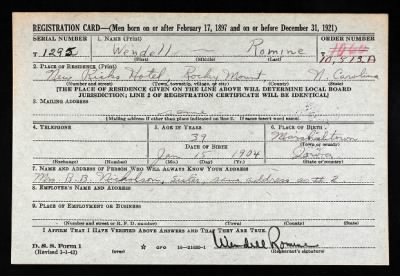 REGISTRATION CARD—(Men born on or after February 17, 1897 and on or before December 31, 1921)
SERIAL NUMBER 1. NAME (Print) ORDER NUMBER
T 1295 Wendell — Romine 10,813A
(First) (Middle) (Last)
2. PLACE OF RESIDENCE (Print)
New Ricks Hotel Rocky Mount N. Carolina
(Number and street) (Town, township, village, or city) (County) (State)
(THE PLACE OF RESIDENCE GIVEN ON THE LINE ABOVE WILL DETERMINE LOCAL BOARD
JURISDICTION; LINE 2 OF REGISTRATION CERTIFICATE WILL BE IDENTICAL)
3. MAILING ADDRESS
Same
(Mailing address if other than place indicated on line 2. If same insert word same)
4. TELEPHONE 5. AGE IN YEARS 6. PLACE OF BIRTH
39 Marshalltown
DATE OF BIRTH (Town or county)
Jan 15 1904 Iowa
(Exchange) (Number) (Mo.) (Day) (Yr.) (State or country)
7. NAME AND ADDRESS OF PERSON WHO WILL ALWAYS KNOW YOUR ADDRESS
Mrs. R.B. Nicholson, sister, same address as 2.
8. EMPLOYER'S NAME AND ADDRESS
9. PLACE OF EMPLOYMENT OR BUSINESS
(Number and street or R. F. D. number) (Town) (County) (State)
I AFFIRM THAT I HAVE VERIFIED ABOVE ANSWERS AND THAT THEY ARE TRUE.
D. S. S. Form 1
(Revised 1-1-42) (over) GPO 16—21630-1 Wendell Romine
(Registrant's signature)